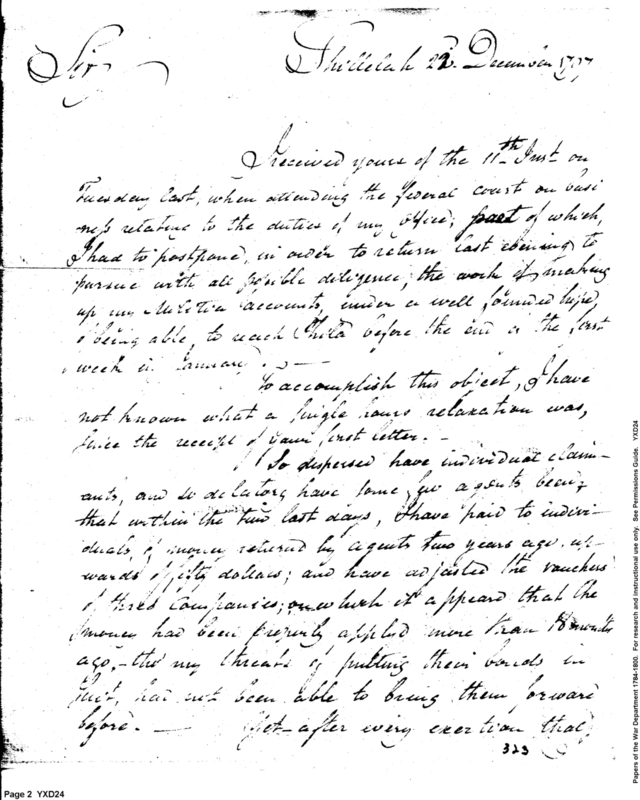 Sir Shillelah 22d. December 1797
I received yours of the 11th Inst on
Tuesday last, when attending the federal court on busi
ness relating to the duties of my Office; part of which,
I had to postpone, in order to return last evening to
pursue with all possible diligence, the work of making
up my Militia accounts, under a well founded hope,
of being able, to reach Phila before the end o the first
week in January. —
To accomplish this object, I have
not known what a single hours relaxation was,
since the receipt of your first letter. —
So dispersed have individual claim-
ants, and so delatory have some few agents been,
that within the two last days, I have paid to indivi-
duals, of money returned by agents two years ago, up-
wards of fifty dollars; and have adjusted the vouchers
of three Companies; on which it appeard that the
money had been properly applied more than 18 months
ago, – tho' my threats of putting their bonds in
suit, had not been able to bring them forward
before. — Yet after every exertion that
323
Page 2 YXD24
Papers of the War Department 1784-1800. For research and instructional use only. See Permissions Guide. YXD24